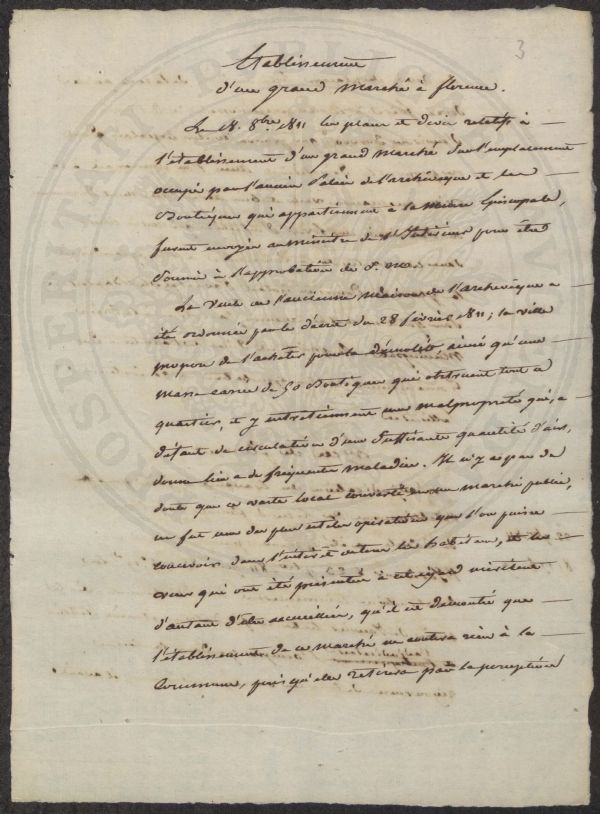 3
Etablissement
d'un grand Marché à florence.
Le 18. 8bre 1811 les plans et devis relatifs à
l'etablissement d'un grand Marché sur l'emplacement
occupé par l'ancien Palais de l'archevêque et les
Boutiques qui appartiennent à la Mense Episcopale,
furent envoyés au ministre de l'Intérieur pour être
soumis à l'approbation de S. M.
La Vente de l'ancienne Maison de l'archevêque a
été ordonnée par le décret du 28 février 1811; la ville
propose de l'acheter pour la démolir ainsi qu'une
Masse de 50 Boutiques qui obstruent tout ce
quartier, et y entretiennent une malpropreté qui, à
défaut de circulation d'une suffisante quantité d'air,
donne lieu a de fréquentes maladies. Il n'y a pas de
doute que ce vaste local converti en un marché public,
ne fut une des plus utiles opérations que l'on puisse
concevoir dans l'intérêt de tous les habitans, et les
vœux qui ont été présentés à cet égard méritent
d'autant d'être accueillis, qu'il est démontré que
l'établissement de ce marché ne coutera rien à la
Commune, puis qu'elle retirera par la perception